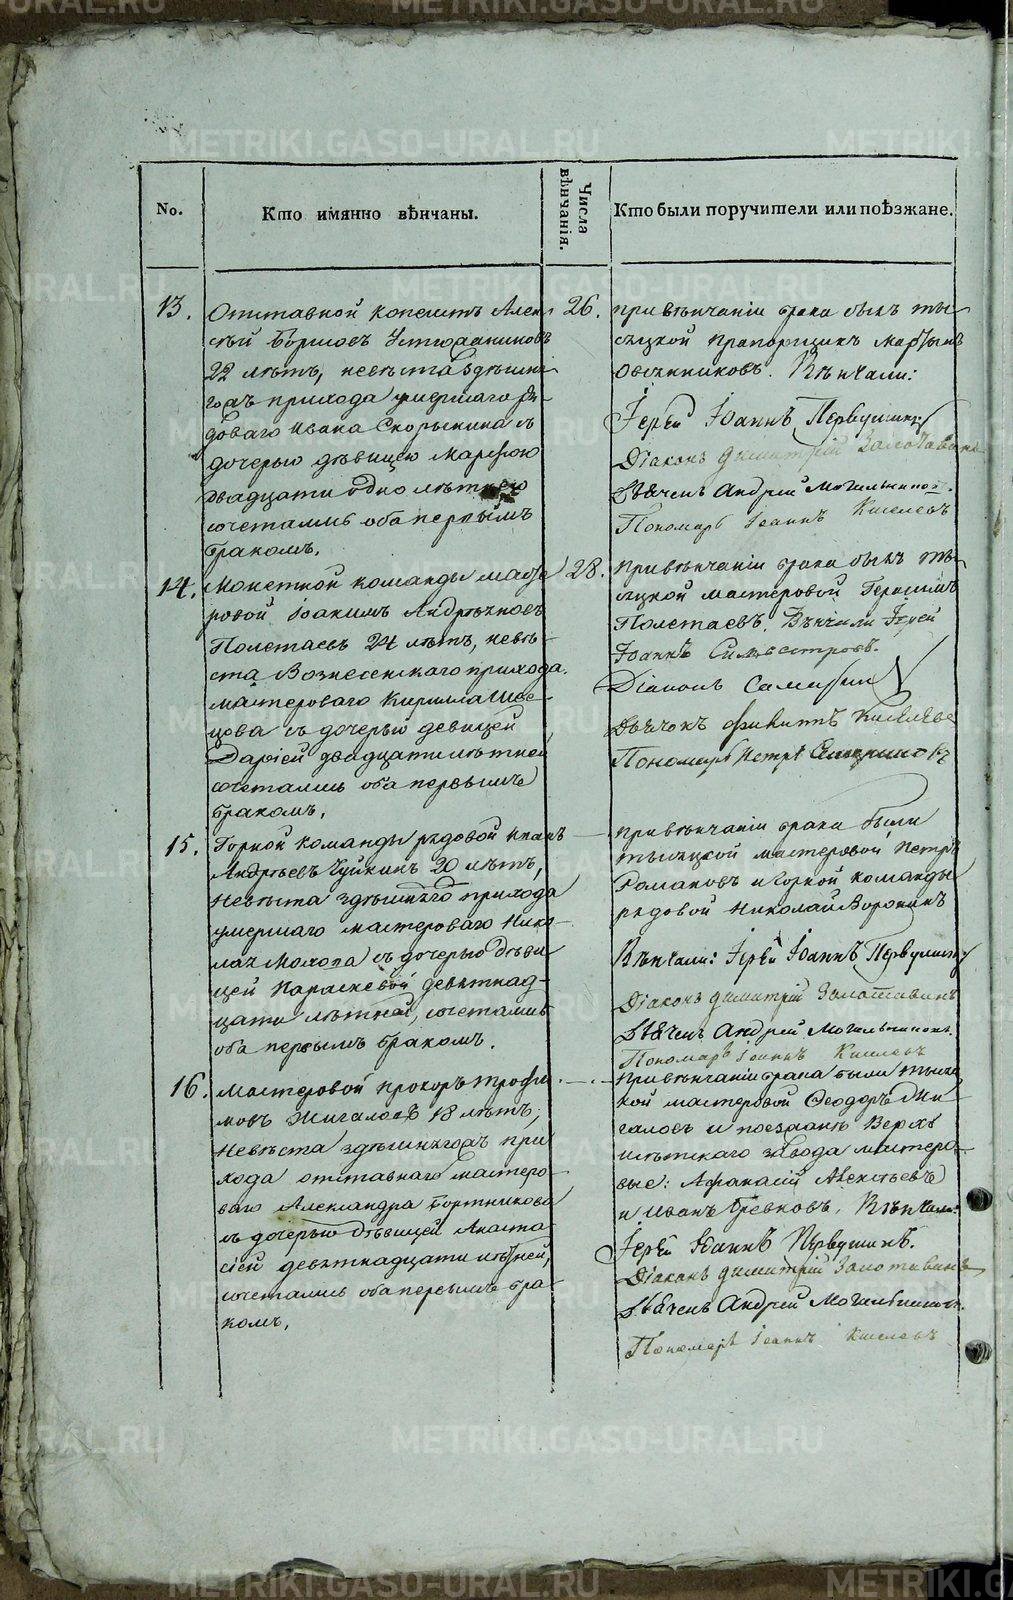 No.
Кто имянно вѣнчаны.
Числа вѣнчанія.
Кто были поручители или поѣзжане.
13.
Отставной копеистъ Алек
сѣй Борисовъ
22 лѣтъ, невѣста здѣшня
гожъ прихода умершаго ря
доваго Ивана Скорынина съ
дочерью дѣвицею Марфою
двадцати одно лѣтнею
сочетались оба первымъ
бракомъ.
26.
При вѣнчаніи брака былъ ты
сяцкой прапорщикъ Мартынъ
Овчинниковъ. Вѣнчали:
Іерей Іоаннъ Первушинъ
Діаконъ Димитрій Золотавинъ
Дьячекъ Андрей Могильниковъ.
Пономарь Іоаннъ Киселевъ
14.
Монетной команды масте
ровой Іоакимъ Андрѣяновъ
Полетаевъ 24 лѣтъ, невѣ
ста Вознесенскаго прихода
мастероваго Кирилла Шве
цова съ дочерью девицей
Дарьей двадцати лѣтней
сочетались оба первымъ
бракомъ.
28.
При вѣнчаніи брака былъ ты
сяцкой мастеровой Герасимъ
Полетаевъ. Вѣнчали Іерей
Іоаннъ Сильвестровъ.
Діаконъ
Дьячокъ Киселевъ
Пономарь Петръ
15.
Горной команды рядовой Иванъ
Андрѣевъ Чуйкинъ 20 лѣтъ,
Невѣста здѣшняго прихода
умершаго мастероваго Нико
лая Молога съ дочерью дѣви
цей Параскевой девятнад
цати лѣтней, сочетались
оба первымъ бракомъ.
При вѣнчаніи брака были
тысяцкой мастеровой Петръ
Романовъ и Горной команды
рядовой Николай Воронинъ
Вѣнчали: Іерей Іоаннъ Первушинъ
Діаконъ Димитрій Золотавинъ
Дьячекъ Андрей Могильниковъ.
Пономарь Іоаннъ Киселевъ
16.
Мастеровой Прокоръ Трофи
мовъ Жигаловъ 18 лѣтъ;
Невѣста здѣшнягожъ при
хода отставнаго мастеро
ваго Александра Бортникова
съ дочерью дѣвицей Анаста
сіей девятнадцати лѣтней,
сочетались оба первымъ бра
комъ.
При вѣнчаніи брака были тысяц
кой мастеровой Ѳеодоръ Жи
галовъ и поезжане Верхъ
исѣтскаго завода мастеро
вые: Афанасій Алексѣевъ
и Иванъ Бревновъ. Вѣнчали:
Іерей Іоаннъ Первушинъ.
Діаконъ Димитрій Золотавинъ
Дьячекъ Андрей Могильниковъ.
Пономарь Іоаннъ Киселевъ
METRIKI.GASO-URAL.RU